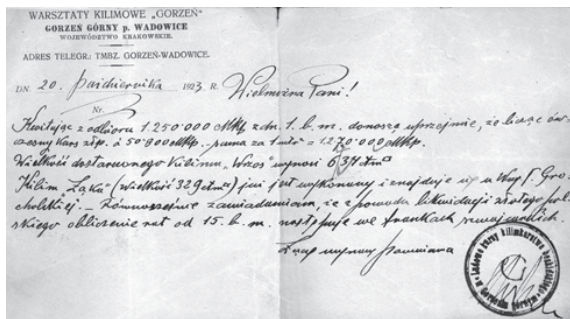 WARSZTATY KILIMOWE „GORZEŃ"
GORZEŃ GÓRNY p. WADOWICE
WOJEWÓDZTWO KRAKOWSKIE.
ADRES TELEGR.: TMBZ. GORZEŃ-WADOWICE.
DN. 20. Października 1923 R.
Nr.
Wielmożna Pani!
Kwitując z odbioru 1.250.000 Mkp z dn. 1. b. m. donoszę uprzejmie, że licząc ów-
czesny kurs złp. à 50.800 Mkp. - suma za 1 metr = 1.270.000 Mkp.
Wielkość dostarczonego kilimu „Wrzos" wynosi
Kilim „Łąka" (wielkość 329 ) już jest wykonany i znajduje się u Wnej P. Gro-
cholskiej. - Równocześnie zawiadamiam, że z powodu likwidacji złotego pol-
skiego obliczenie rat od 15. b. m. następuje we frankach szwajcarskich.
Z